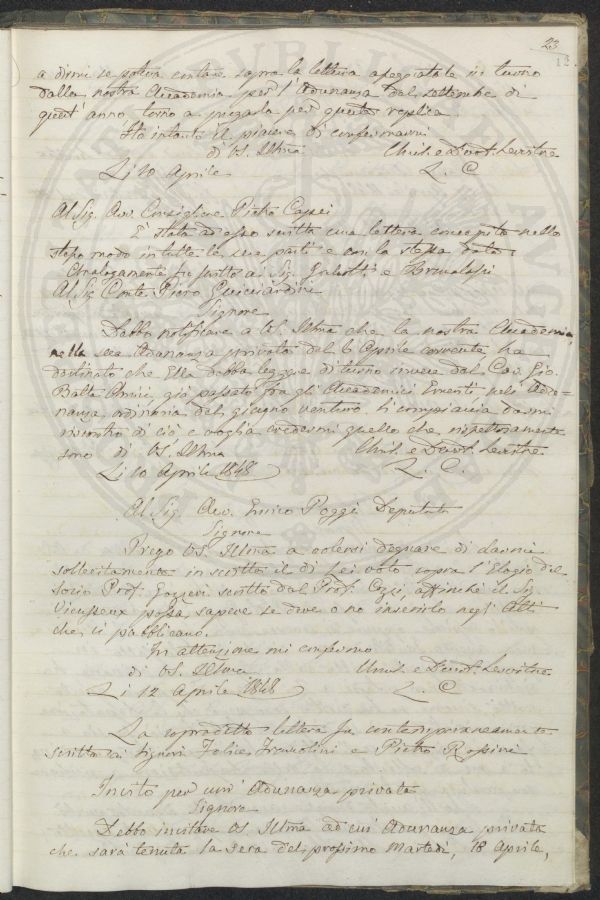 23
12.
a dirmi se poteva contare sopra la lettura assegnatale in turno
dalla nostra Accademia per l'Adunanza del settembre di
quest'anno, torno a pregarla per questa replica.
Ho intanto il piacere di confermarmi
di VS. Illma Umil. e Devot. Servitre
Li 10 Aprile L. C.
Al Sig. Avv. Consigliere Pietro Capei
E' stata ad esso scritta una lettera concepita nello
stesso modo in tutte le sue parti e con la stessa data
Analogamente fu scritto ai Sig. e
Al Sig. Conte Piero Guicciardini
Signore
Debbo notificare a VS. Illma che la nostra Accademia,
nella sua Adunanza privata del 6 Aprile corrente, ha
destinato che Ella debba leggere di turno invece del Cav. Gio.
Batta Amici, già passato fra gli Accademici Emeriti, nell'Adu-
nanza ordinaria del giugno venturo. Si compiaccia darmi
riscontro di ciò e voglia credermi quello che rispettosamente
sono di VS. Illma Umil. e Devot. Servitre
Li 10 Aprile 1848 L. C.
Al Sig. Avv. Enrico Poggi Deputato
Signore
Prego VS. Illma a volersi degnare di darmi
sollecitamente in scritto il di Lei voto sopra l'Elogio del
Socio Prof. Gazzeri scritto dal Prof. Cozzi, affinché il Sig.
Vieusseux possa sapere se deve o no inserirlo negli Atti
che si pubblicano.
In attenzione mi confermo
di VS. Illma Umil. e Devot. Servitre
Li 12 Aprile 1848 L. C.
La sopradetta lettera fu contemporaneamente
scritta ai Signori Felice Francolini e Pietro Rossini
Invito per un'Adunanza privata
Signore
Debbo invitare VS. Illma ad un'Adunanza privata
che sarà tenuta la sera del prossimo Martedì, 18 Aprile,